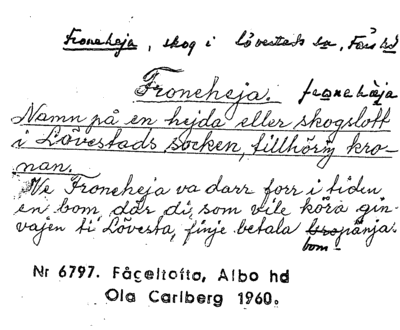 Froneheja, skog i Lövestads sn, Färs hd
Froneheja. fronehäja
Namn på en hejda eller skogslott
i Lövestads socken, tillhörig kro-
nan.
Ve Froneheja va darr forr i tiden
en bom, där di, som vile köra gin-
vajen ti Lövesta, finje betala bropänja.
bom-
Nr 6797. Fågeltofta, Albo hd
Ola Carlberg 1960.